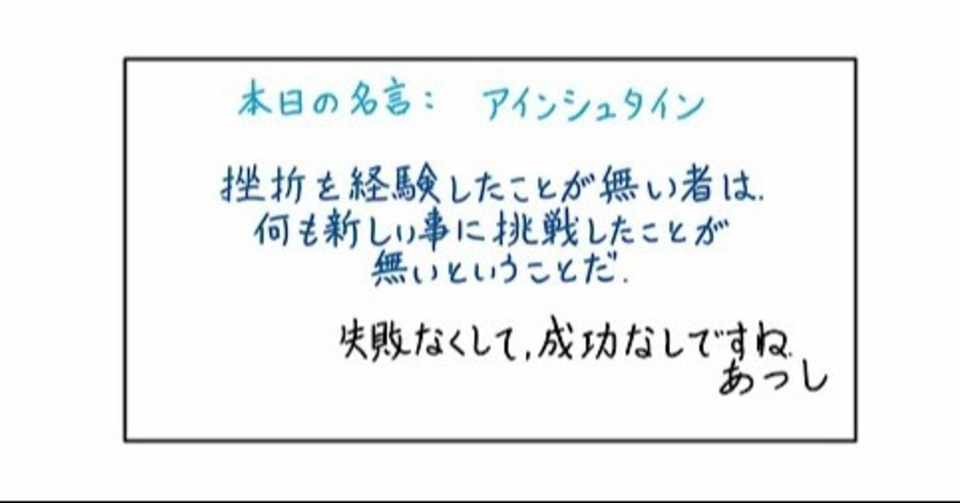 本日の名言: アインシュタイン
挫折を経験したことが無い者は.
何も新しい事に挑戦したことが
無いということだ.
失敗なくして,成功なしですね.
あつし